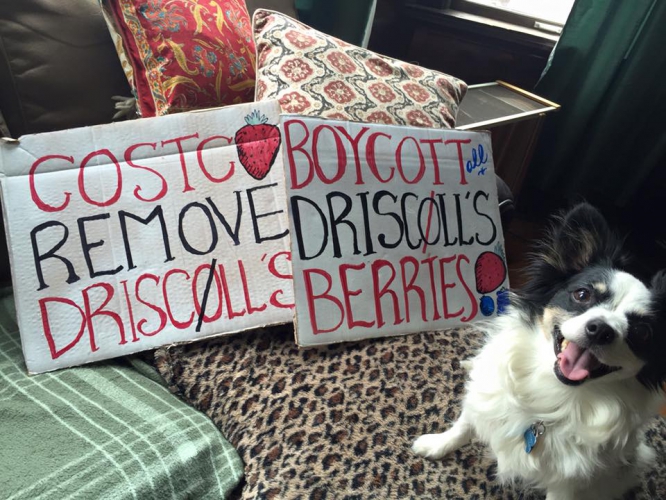 COSTC
REMOVE
DRISCØLL'S
BOYCOTT all
DRISCØLL'S
BERRIES